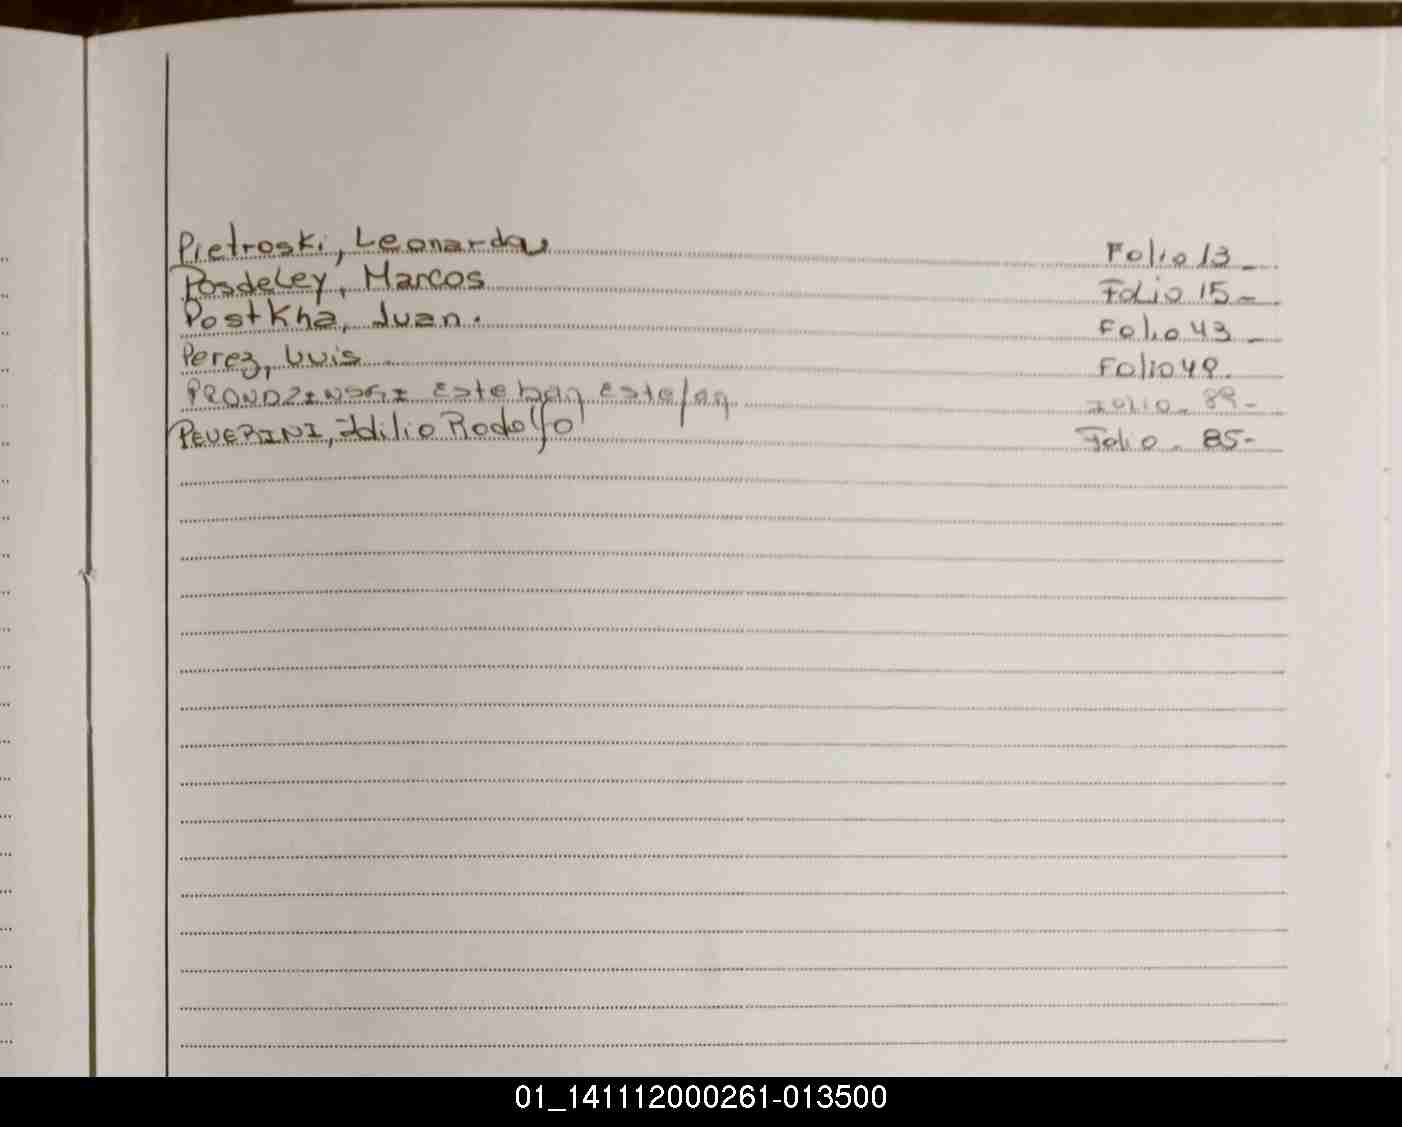 Pietroski, Leonarda Folio 13 -
Posdeley, Marcos Folio 15 -
Postkha, Juan. Folio 43 -
Perez, Luis Folio 49.
PRONDZINSGI Esteban Estefan Folio - 89 -
PEVERINI, Idilio Rodolfo Folio - 85 -
01_141112000261-013500